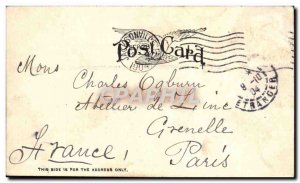 Post Card
Mons
Charles Ogburn
Atellier de Zinc
Grenelle
France, Paris
THIS SIDE IS FOR THE ADDRESS ONLY.
ETRANGER